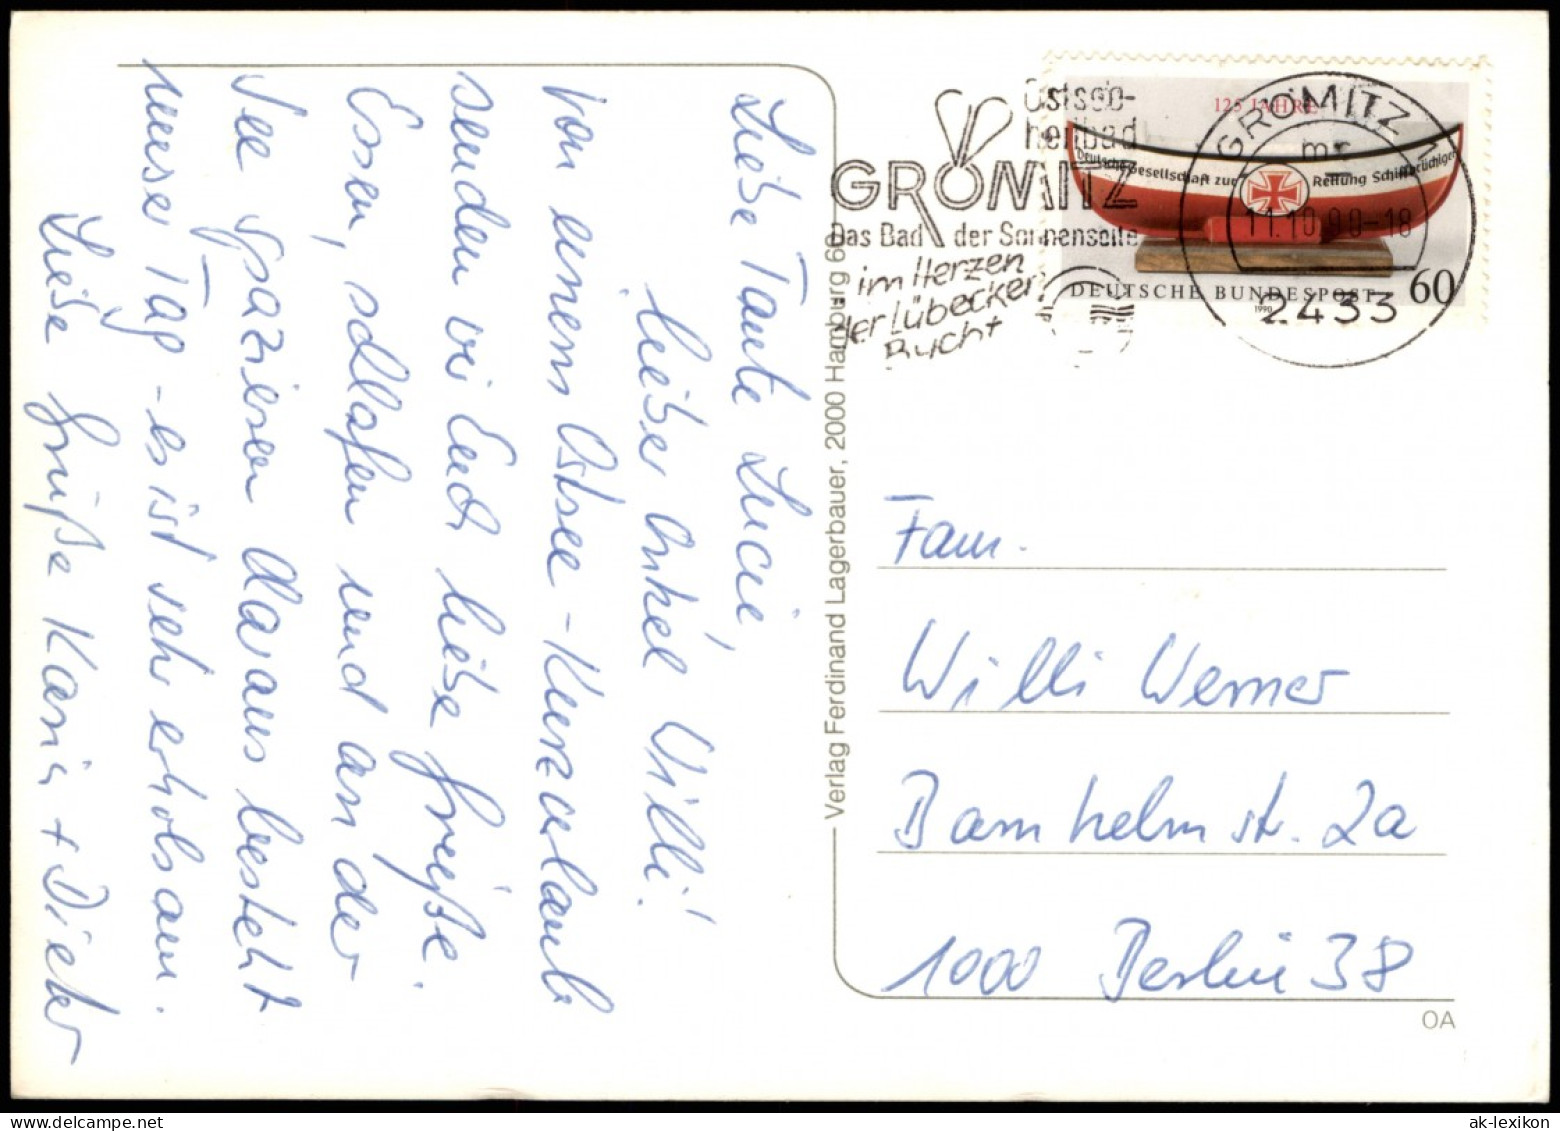 Liebe Tante Lucie,
lieber Onkel Willi!
Von einem Ostsee-Kurzurlaub
senden wir Euch liebe Grüße.
Essen, schlafen und an der
See spazieren daraus besteht
unser Tag - es ist sehr erholsam.
Liebe Grüße Karin + Dieter
Verlag Ferdinand Lagerbauer, 2000 Hamburg 60
Ostsee-
heilbad
GRÖMITZ
Das Bad der Sonnenseite
im Herzen
der Lübecker
Bucht
125 JAHRE
Deutsche Gesellschaft zur Rettung Schiffbrüchiger
DEUTSCHE BUNDESPOST 60
1990
GRÖMITZ 1
mc
11.10.90-18
2433
Fam.
Willi Werner
Barnhelmstr. 2a
1000 Berlin 38
OA
ak-lexikon